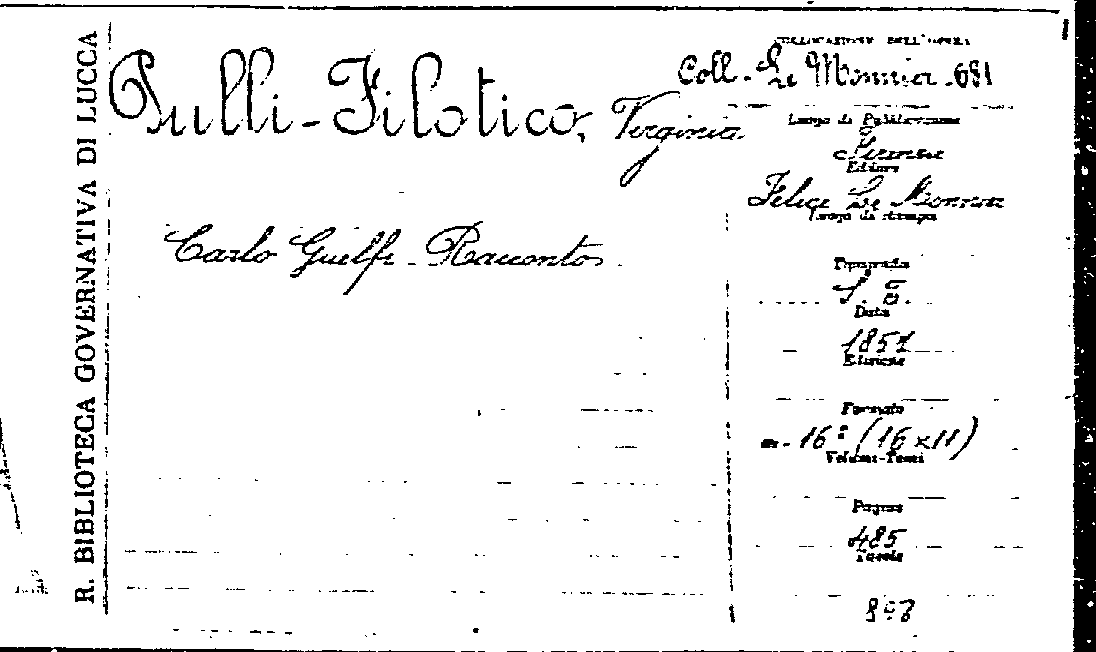 R. BIBLIOTECA GOVERNATIVA DI LUCCA
Pulli-Filotico, Virginia
Carlo Guelfi - Racconto
COLLOCAZIONE DELL'OPERA
Coll. Le Monnier - 681
Luogo di Pubblicazione
Firenze
Editore
Felice Le Monnier
Luogo di stampa
Tipografia
S. T.
Data
1851
Edizione
Formato
16° (16x11)
Volumi-Tomi
Pagine
485
Tavole